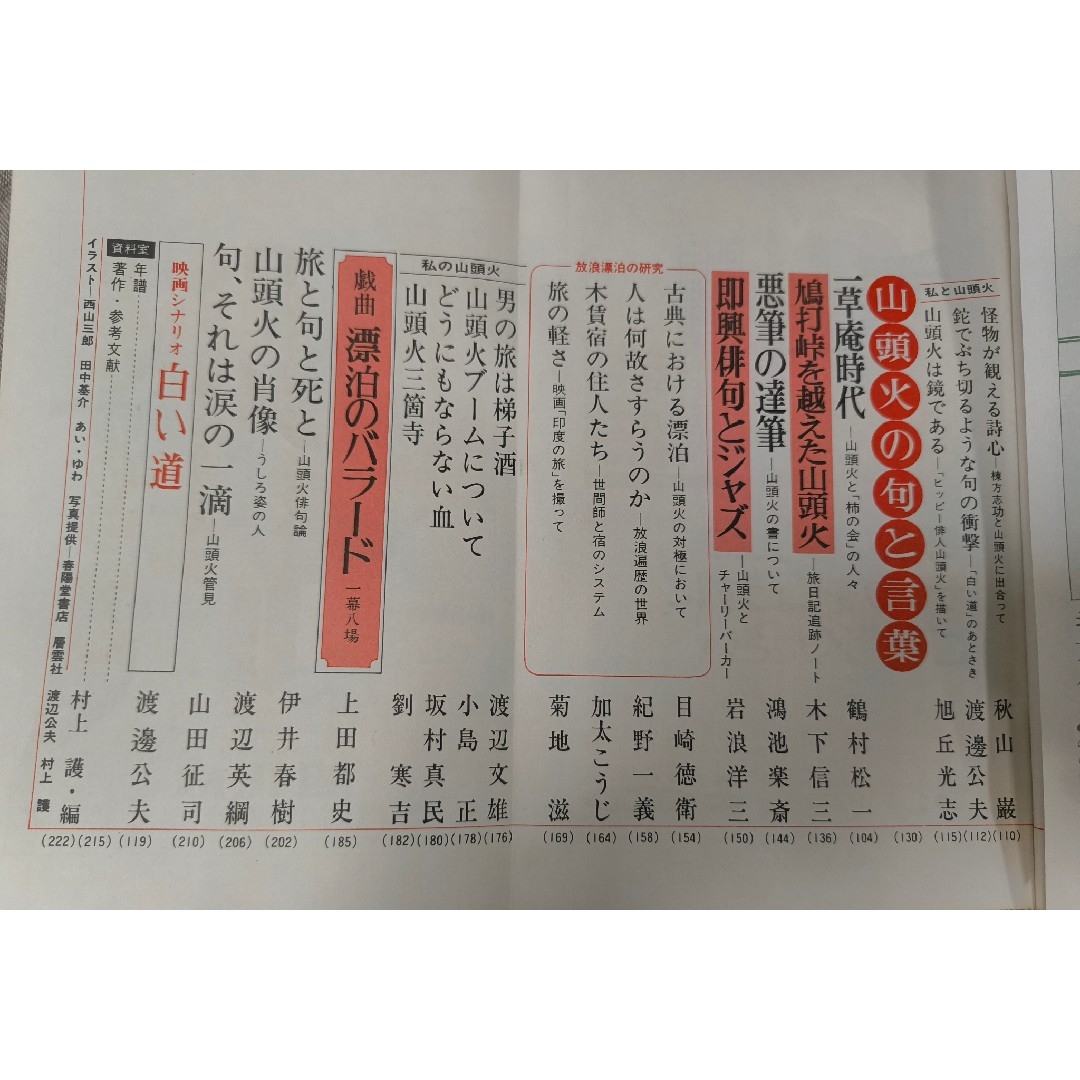 私と山頭火
怪物が観える詩心―棟方志功と山頭火に出合って 秋山 巌 (110)
鉈でぶち切るような句の衝撃―「白い道」のあとさき 渡邊公夫 (112)
山頭火は鏡である―「ヒッピー俳人山頭火」を描いて 旭丘光志 (115)
山頭火の句と言葉 (130)
一草庵時代―山頭火と「柿の会」の人々 鶴村松一 (104)
鳩打峠を越えた山頭火―旅日記追跡ノート 木下信三 (136)
悪筆の達筆―山頭火の書について 鴻池楽斎 (144)
即興俳句とジャズ―山頭火とチャーリーパーカー 岩浪洋三 (150)
放浪漂泊の研究
古典における漂泊―山頭火の対極において 目崎徳衛 (154)
人は何故さすらうのか―放浪遍歴の世界 紀野一義 (158)
木賃宿の住人たち―世間師と宿のシステム 加太こうじ (164)
旅の軽さ―映画「印度の旅」を撮って 菊地 滋 (169)
私の山頭火
男の旅は梯子酒 渡辺文雄 (176)
山頭火ブームについて 小島 正 (178)
どうにもならない血 坂村真民 (180)
山頭火三箇寺 劉 寒吉 (182)
戯曲 漂泊のバラード 一幕八場 上田都史 (185)
旅と句と死と―山頭火俳句論 伊井春樹 (202)
山頭火の肖像―うしろ姿の人 渡辺英綱 (206)
句、それは涙の一滴―山頭火管見 山田征司 (210)
映画シナリオ 白い道 渡邊公夫 (119)
資料室
年譜
著作・参考文献 村上 護・編 (215)
(222)
イラスト―西山三郎 田中基介 あい・ゆわ 写真提供―春陽堂書店 層雲社 渡辺公夫 村上 護